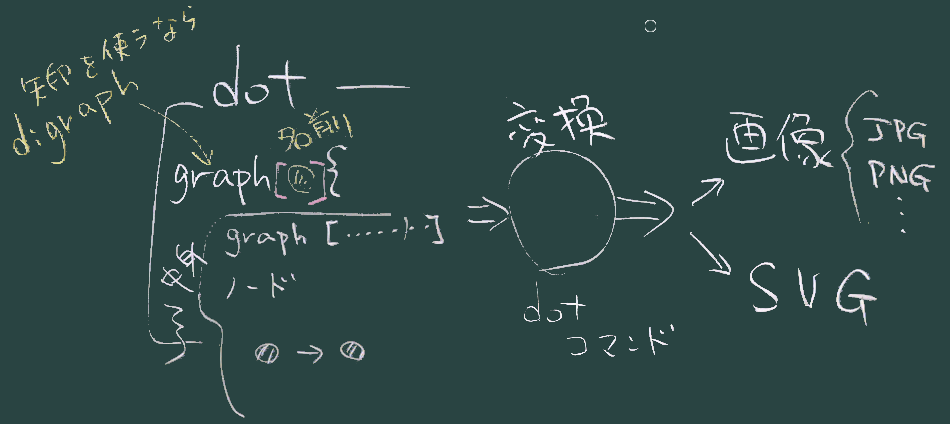 矢印を使うなら
digraph
dot
名前
graph[ ]{
graph [……...]
ノード
}
変換
dot
コマンド
画像
JPG
PNG
⋮
SVG